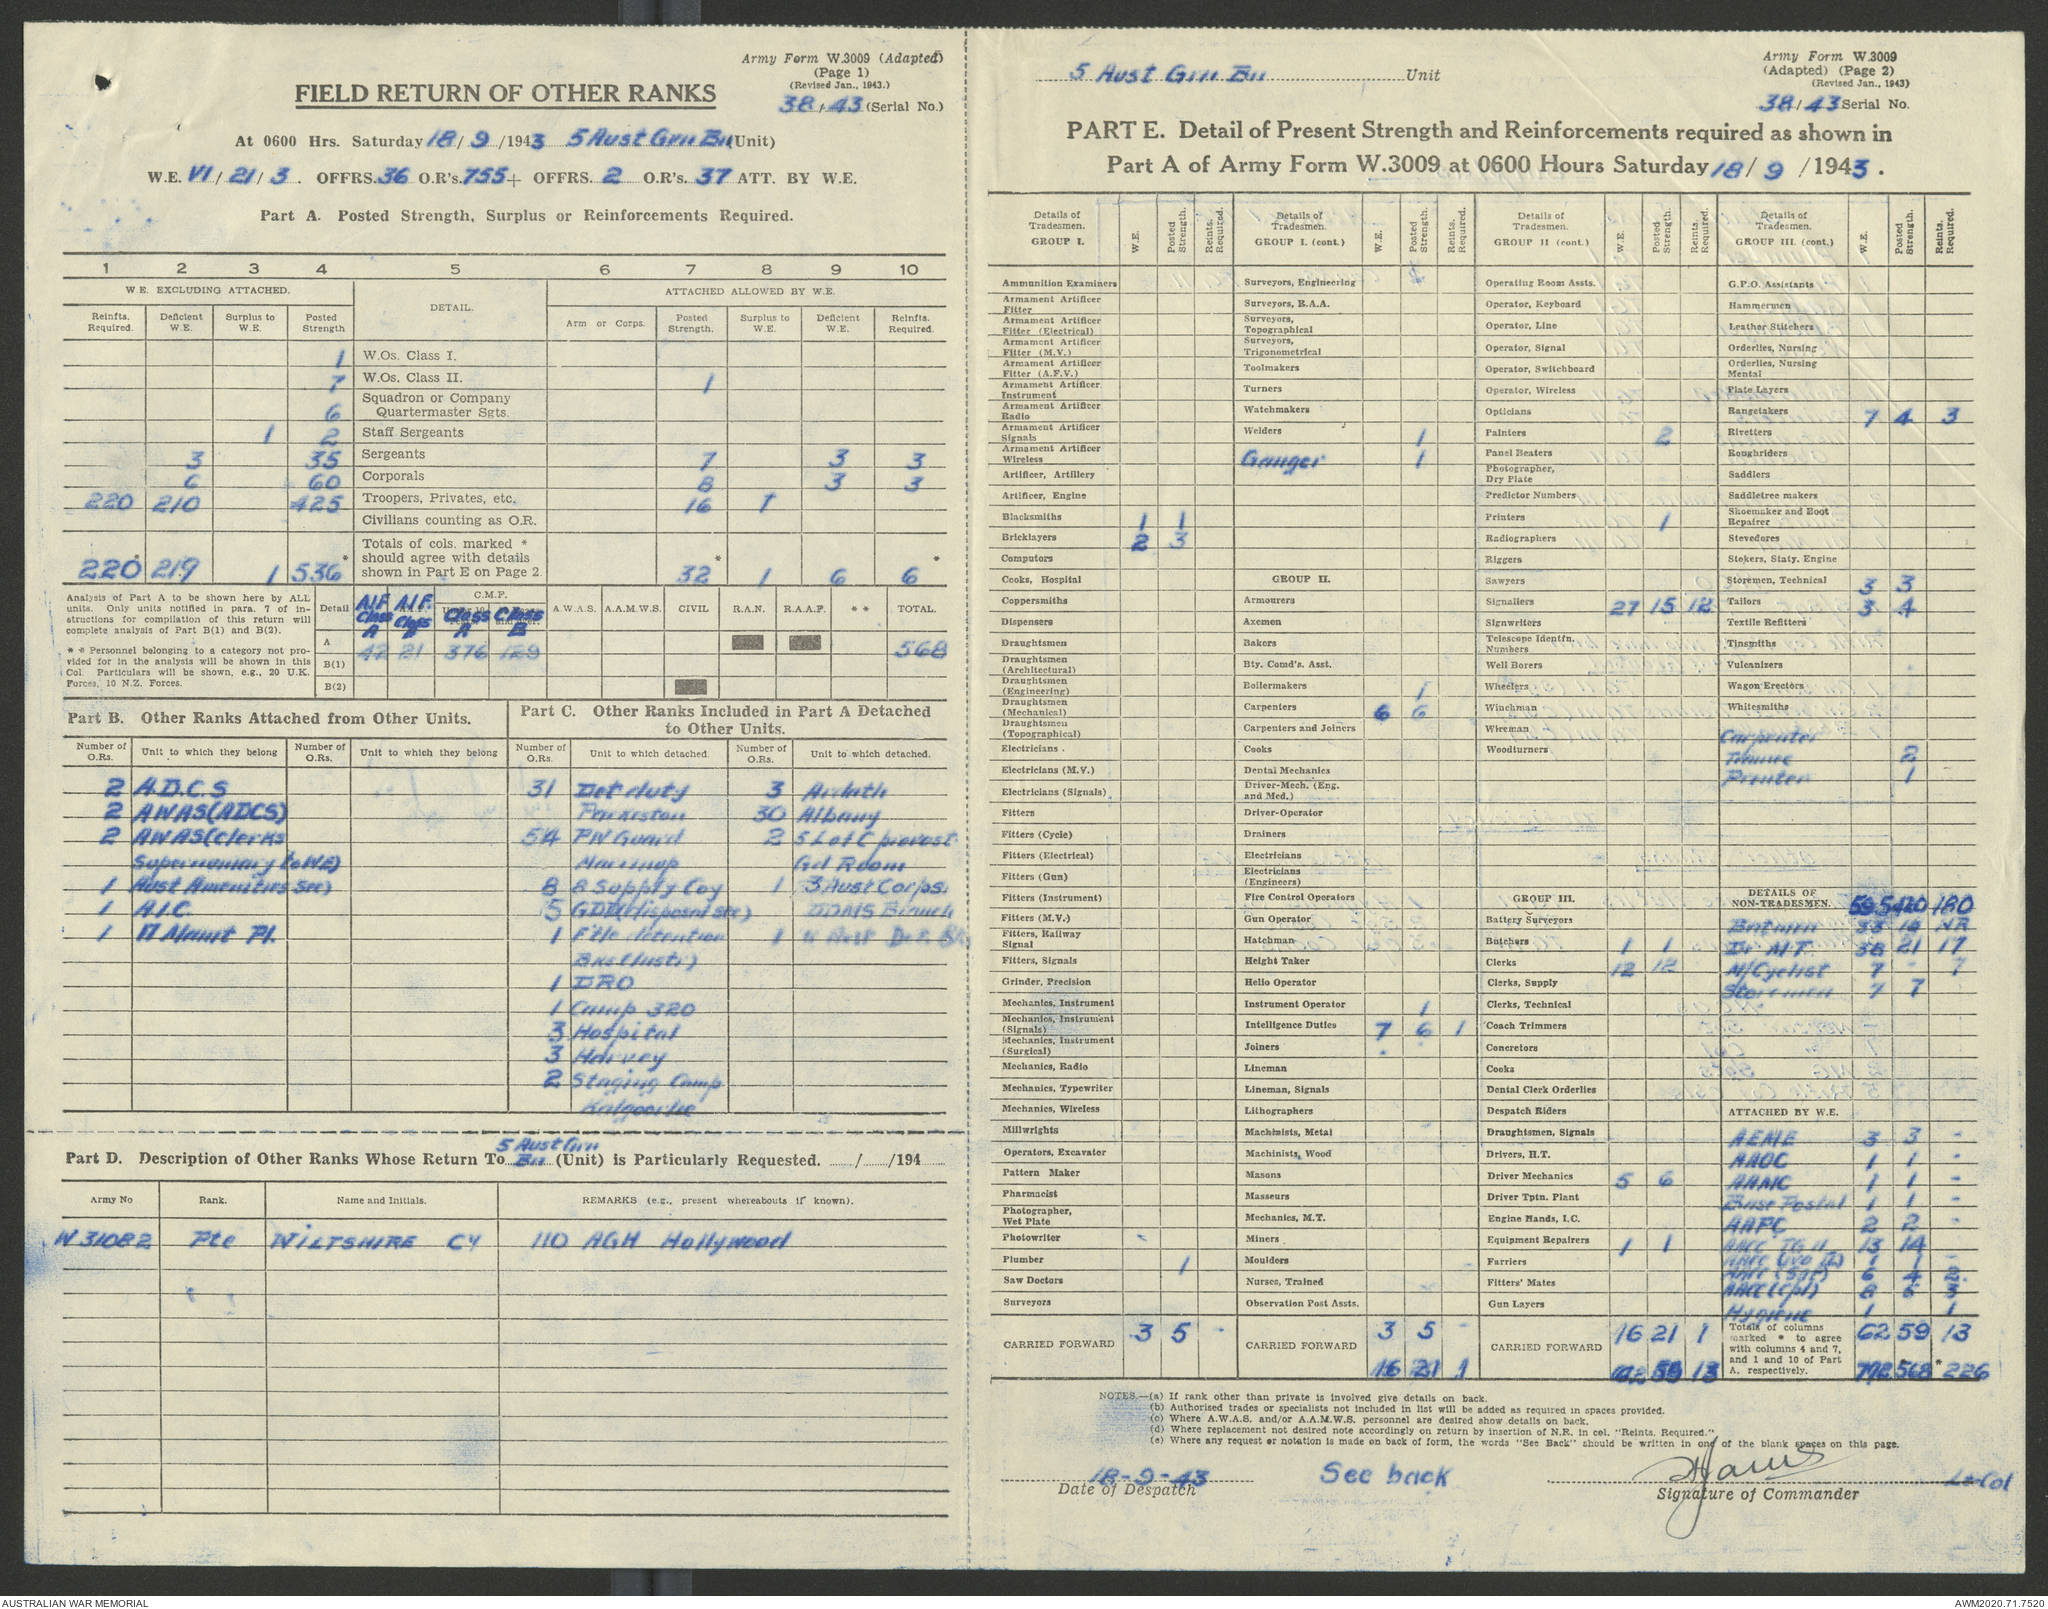 Army Form W.3009 (Adapted)
(Page 1)
(Revised Jan., 1943.)
38/43 (Serial No.)
FIELD RETURN OF OTHER RANKS
At 0600 Hrs. Saturday 18/9/1943 5 Aust Grn Bn (Unit)
W.E. VI/21/3. OFFRS. 36 O.R's. 755 + OFFRS. 2 O.R's. 37 ATT. BY W.E.
Part A. Posted Strength, Surplus or Reinforcements Required.
1 2 3 4 5 6 7 8 9 10
W.E. EXCLUDING ATTACHED. DETAIL. ATTACHED ALLOWED BY W.E.
Reinfts. Required. Deficient W.E. Surplus to W.E. Posted Strength Arm or Corps. Posted Strength. Surplus to W.E. Deficient W.E. Reinfts. Required.
1 W.Os. Class I.
7 W.Os. Class II. 1
6 Squadron or Company Quartermaster Sgts.
1 2 Staff Sergeants
3 35 Sergeants 7 3 3
6 60 Corporals 8 3 3
220 210 425 Troopers, Privates, etc. 16 1
Civilians counting as O.R.
220* 219 1 536* Totals of cols. marked * should agree with details shown in Part E on Page 2. 32* 1 6 6*
Analysis of Part A to be shown here by ALL
units. Only units notified in para. 7 of in-
structions for compilation of this return will
complete analysis of Part B(1) and B(2).
* * Personnel belonging to a category not pro-
vided for in the analysis will be shown in this
Col. Particulars will be shown, e.g., 20 U.K.
Forces, 10 N.Z. Forces.
Detail AIF Class A A.I.F. Class B C.M.F. Class A Class B A.W.A.S. A.A.M.W.S. CIVIL R.A.N. R.A.A.F. * * TOTAL.
A 42 21 376 129 568
B(1)
B(2)
Part B. Other Ranks Attached from Other Units.
Number of O.Rs. Unit to which they belong Number of O.Rs. Unit to which they belong
2 A.D.C.S
2 AWAS (ADCS)
2 AWAS (Clerks
Supernumary to WE)
1 Aust Amenities Sec)
1 A.I.C.
1 17 Maint Pl.
Part C. Other Ranks Included in Part A Detached
to Other Units.
Number of O.Rs. Unit to which detached. Number of O.Rs. Unit to which detached.
31 Det duty 3
Parkeston 30 Albany
54 PW Guard 2 5 L of C provost
Marrinup Gd Room
8 8 Supply Coy 1 3 Aust Corps
5 GDD (disposal sec) DDMS Branch
1 F'tle detention 1
1 DRO
1 Camp 320
3 Hospital
3 Harvey
2 Staging Camp
Kalgoorlie
Part D. Description of Other Ranks Whose Return To 5 Aust Grn Bn (Unit) is Particularly Requested. ....../....../194
Army No Rank. Name and Initials. REMARKS (e.g., present whereabouts if known).
W 31082 Pte WILTSHIRE CY 110 AGH Hollywood
5 Aust Grn Bn Unit
Army Form W.3009
(Adapted) (Page 2)
(Revised Jan., 1943)
38/43 Serial No.
PART E. Detail of Present Strength and Reinforcements required as shown in
Part A of Army Form W.3009 at 0600 Hours Saturday 18/9/1943.
Details of Tradesmen. GROUP I. W.E. Posted Strength. Reints. Required.
Ammunition Examiners
Armament Artificer Fitter
Armament Artificer Fitter (Electrical)
Armament Artificer Fitter (M.V.)
Armament Artificer Fitter (A.F.V.)
Armament Artificer Instrument
Armament Artificer Radio
Armament Artificer Signals
Armament Artificer Wireless
Artificer, Artillery
Artificer, Engine
Blacksmiths 1 1
Bricklayers 2 3
Computors
Cooks, Hospital
Coppersmiths
Dispensers
Draughtsmen
Draughtsmen (Architectural)
Draughtsmen (Engineering)
Draughtsmen (Mechanical)
Draughtsmen (Topographical)
Electricians
Electricians (M.V.)
Electricians (Signals)
Fitters
Fitters (Cycle)
Fitters (Electrical)
Fitters (Gun)
Fitters (Instrument)
Fitters (M.V.)
Fitters, Railway Signal
Fitters, Signals
Grinder, Precision
Mechanics, Instrument
Mechanics, Instrument (Signals)
Mechanics, Instrument (Surgical)
Mechanics, Radio
Mechanics, Typewriter
Mechanics, Wireless
Millwrights
Operators, Excavator
Pattern Maker
Pharmacist
Photographer, Wet Plate
Photowriter
Plumber 1
Saw Doctors
Surveyors
CARRIED FORWARD 3 5 -
Details of Tradesmen. GROUP I. (cont.) W.E. Posted Strength. Reints. Required.
Surveyors, Engineering
Surveyors, R.A.A.
Surveyors, Topographical
Surveyors, Trigonometrical
Toolmakers
Turners
Watchmakers
Welders 1
Ganger 1
GROUP II.
Armourers
Axemen
Bakers
Bty. Comd's. Asst.
Boilermakers 1
Carpenters 6 6
Carpenters and Joiners
Cooks
Dental Mechanics
Driver-Mech. (Eng. and Med.)
Driver-Operator
Drainers
Electricians
Electricians (Engineers)
Fire Control Operators
Gun Operator
Hatchman
Height Taker
Helio Operator
Instrument Operator 1
Intelligence Duties 7 6 1
Joiners
Lineman
Lineman, Signals
Lithographers
Machinists, Metal
Machinists, Wood
Masons
Masseurs
Mechanics, M.T.
Miners
Moulders
Nurses, Trained
Observation Post Assts.
CARRIED FORWARD 3 5 -
16 21 1
Details of Tradesmen. GROUP II (cont.) W.E. Posted Strength. Reints. Required.
Operating Room Assts.
Operator, Keyboard
Operator, Line
Operator, Signal
Operator, Switchboard
Operator, Wireless
Opticians
Painters 2
Panel Beaters
Photographer, Dry Plate
Predictor Numbers
Printers 1
Radiographers
Riggers
Sawyers
Signallers 27 15 12
Signwriters
Telescope Identfn. Numbers
Well Borers
Wheelers
Winchman
Wireman
Woodturners
GROUP III.
Battery Surveyors
Butchers 1 1
Clerks 12 12
Clerks, Supply
Clerks, Technical
Coach Trimmers
Concretors
Cooks
Dental Clerk Orderlies
Despatch Riders
Draughtsmen, Signals
Drivers, H.T.
Driver Mechanics 5 6
Driver Tptn. Plant
Engine Hands, I.C.
Equipment Repairers 1 1
Farriers
Fitters' Mates
Gun Layers
CARRIED FORWARD 16 21 1
62 59 13
Details of Tradesmen. GROUP III. (cont.) W.E. Posted Strength. Reints. Required.
G.P.O. Assistants
Hammermen
Leather Stitchers
Orderlies, Nursing
Orderlies, Nursing Mental
Plate Layers
Rangetakers 7 4 3
Rivetters
Roughriders
Saddlers
Saddletree makers
Shoemaker and Boot Repairer
Stevedores
Stokers, Staty. Engine
Storemen, Technical 3 3
Tailors 3 4
Textile Refitters
Tinsmiths
Vulcanizers
Wagon Erectors
Whitesmiths
Carpenter
2
Printer 1
DETAILS OF NON-TRADESMEN. 595 420 180
Batmen 35 16 NR
Dr M.T. 38 21 17
M/Cyclist 7 - 7
Storemen 7 7
ATTACHED BY W.E.
AEME 3 3 -
AAOC 1 1 -
AAMC 1 1 -
Base Postal 1 1 -
AAPC 2 2 -
AACC TG II 13 14
AACC (WO II) 1 1 -
AACC (Sgt) 6 4 2
AACC (Cpl) 8 5 3
Hygiene 1 1
Totals of columns marked * to agree with columns 4 and 7, and 1 and 10 of Part A. respectively. 62 59 13
792 568 *226
NOTES.—(a) If rank other than private is involved give details on back.
(b) Authorised trades or specialists not included in list will be added as required in spaces provided.
(c) Where A.W.A.S. and/or A.A.M.W.S. personnel are desired show details on back.
(d) Where replacement not desired note accordingly on return by insertion of N.R. in col. "Reints. Required."
(e) Where any request or notation is made on back of form, the words "See Back" should be written in one of the blank spaces on this page.
18-9-43 See back Lt-Col
Date of Despatch Signature of Commander
AUSTRALIAN WAR MEMORIAL AWM2020.71.7520